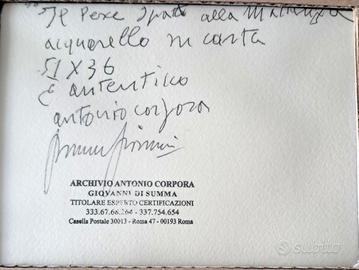 Il Pesce Spada alla Mattanza
acquarello su carta
51 X 36
È autentico
antonio corpora
ARCHIVIO ANTONIO CORPORA
GIOVANNI DI SUMMA
TITOLARE ESPERTO CERTIFICAZIONI
333.67.66.264 - 337.754.654
Casella Postale 30013 - Roma 47 - 00193 Roma
subito